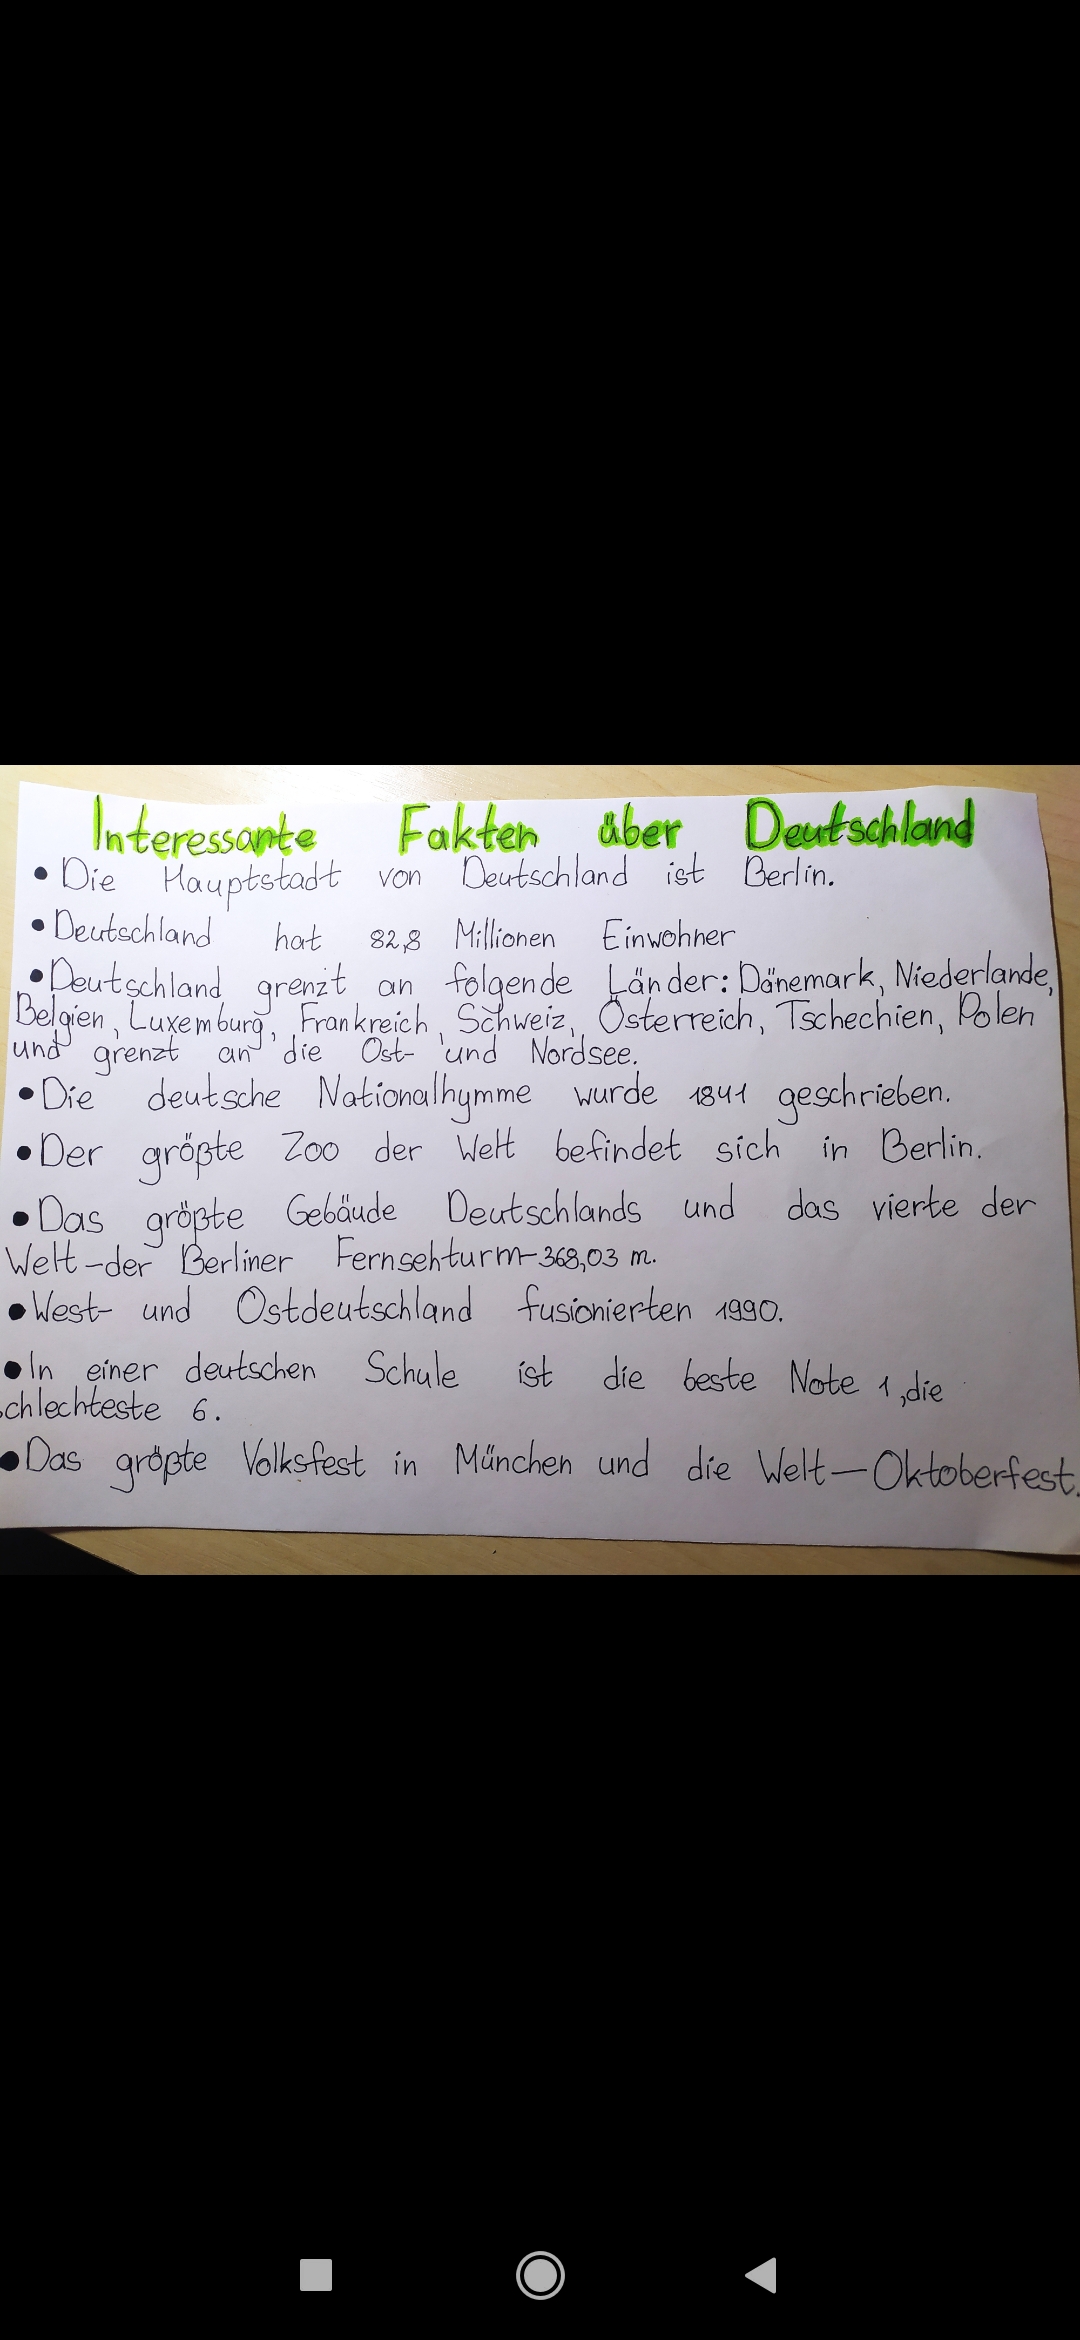 Interessante Fakten über Deutschland
• Die Hauptstadt von Deutschland ist Berlin.
• Deutschland hat 82,8 Millionen Einwohner
• Deutschland grenzt an folgende Länder: Dänemark, Niederlande,
Belgien, Luxemburg, Frankreich, Schweiz, Österreich, Tschechien, Polen
und grenzt an die Ost- und Nordsee.
• Die deutsche Nationalhymme wurde 1841 geschrieben.
• Der größte Zoo der Welt befindet sich in Berlin.
• Das größte Gebäude Deutschlands und das vierte der
Welt - der Berliner Fernsehturm - 368,03 m.
• West- und Ostdeutschland fusionierten 1990.
• In einer deutschen Schule ist die beste Note 1, die
schlechteste 6.
• Das größte Volksfest in München und die Welt — Oktoberfest.